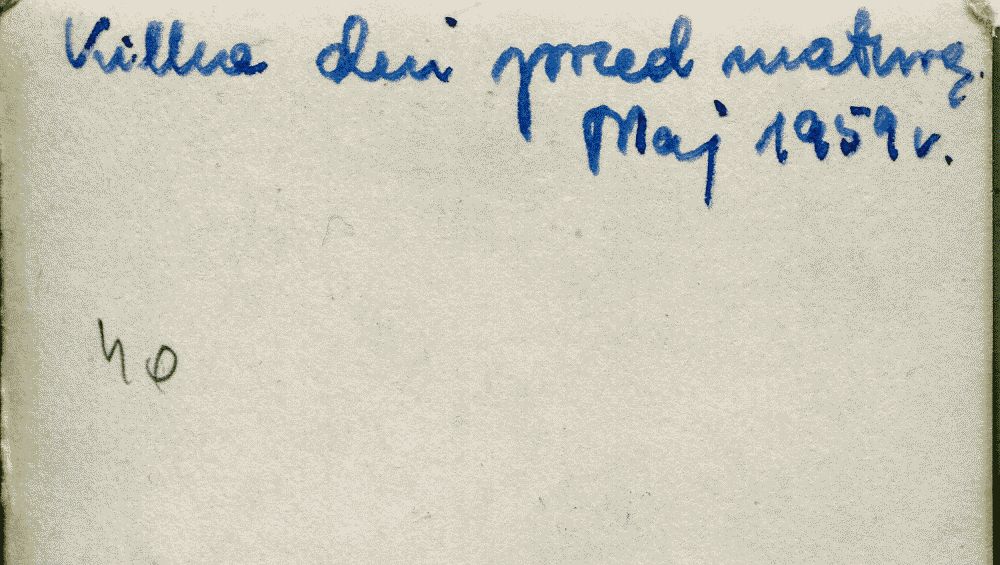 Kilka dni przed maturą.
Maj 1959 r.
40